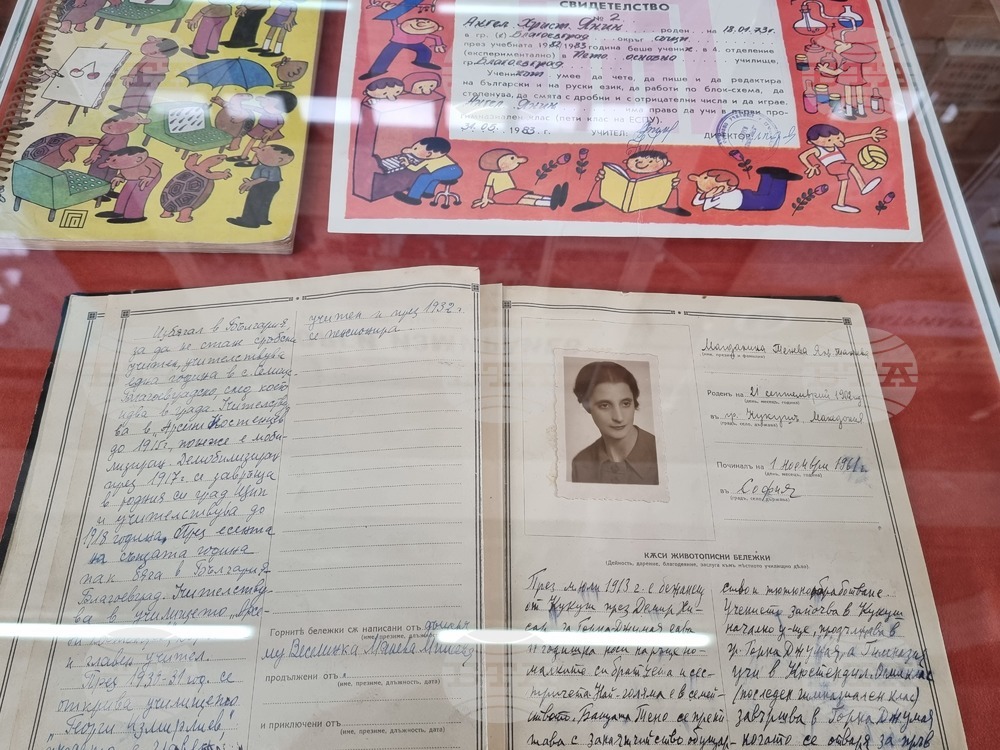 СВИДЕТЕЛСТВО
№ 2
Ангел Христ. Янин роден на 18.04.73г.
в гр. (с) Благоевград окръг също
през учебната 1982/1983 година беше ученик в 4. отделение
(експериментално) в Пето основно училище,
гр. Благоевград.
Ученикът умее да чете, да пише и да редактира
на български и на руски език, да работи по блок-схема, да
степенува, да смята с дробни и с отрицателни числа и да играе.
Ангел Янин има право да учи в първи про-
гимназиален клас (пети клас на ЕСПУ)
1983 г. УЧИТЕЛ: ДИРЕКТОР:
Избягал в България,
за да не стане сръбски
учител, учителствува
една година в с. Селище
Благоевградско, след което
идва в града. Учителству-
ва в "Арсени Костенцев"
до 1915г., понеже е моби-
лизиран. Демобилизиран
през 1917г. се завръща
в родния си град Щип
и учителствува до
1918 година. През есента
на същата година
пак бяга в България
Благоевград. Учителству-
ва в училището
и главен учител.
През 1937-39 год. се
открива училището
"Георги Измирлиев"
учител и през 1932 г.
се пенсионира.
Горнитѣ бележки сѫ написани отъ
(име, презиме, длъжность, дата)
Веселинка Манева
продължени отъ
(име, презиме, длъжность, дата)
и приключени отъ
(име, презиме, длъжность, дата)
Магдалина Тенева
(име, презиме и фамилия)
Роденъ на 21 септемврий
(день, месецъ, година)
въ гр. Кукуш, Македония
(градъ, село, държава)
Починалъ на 1 ноември 1961г.
(день, месецъ, година)
въ София
(градъ, село, държава)
КѪСИ ЖИВОТОПИСНИ БЕЛЕЖКИ
(Дейность, дарение, благодеяние, заслуга къмъ мѣстното училищно дѣло).
През юли 1913 г. е бежанец
от Кукуш през Демир Хи-
сар за Горна Джумая. Една
11 годишна носи на ръце по-
малките си братчета и сес-
тричета. Най-голяма в семей-
ството. Бащата Тено се преп
тава с занаятчийство обущар-
ство и тютюнообработване.
Учението започва в Кукуш
начално у-ще, продължава в
гр. Горна Джумая, а Гимназия
учи в Кюстендил. Останалия
(последен гимназиален клас)
завършва в Горна Джумая
когато се отваря за пръв